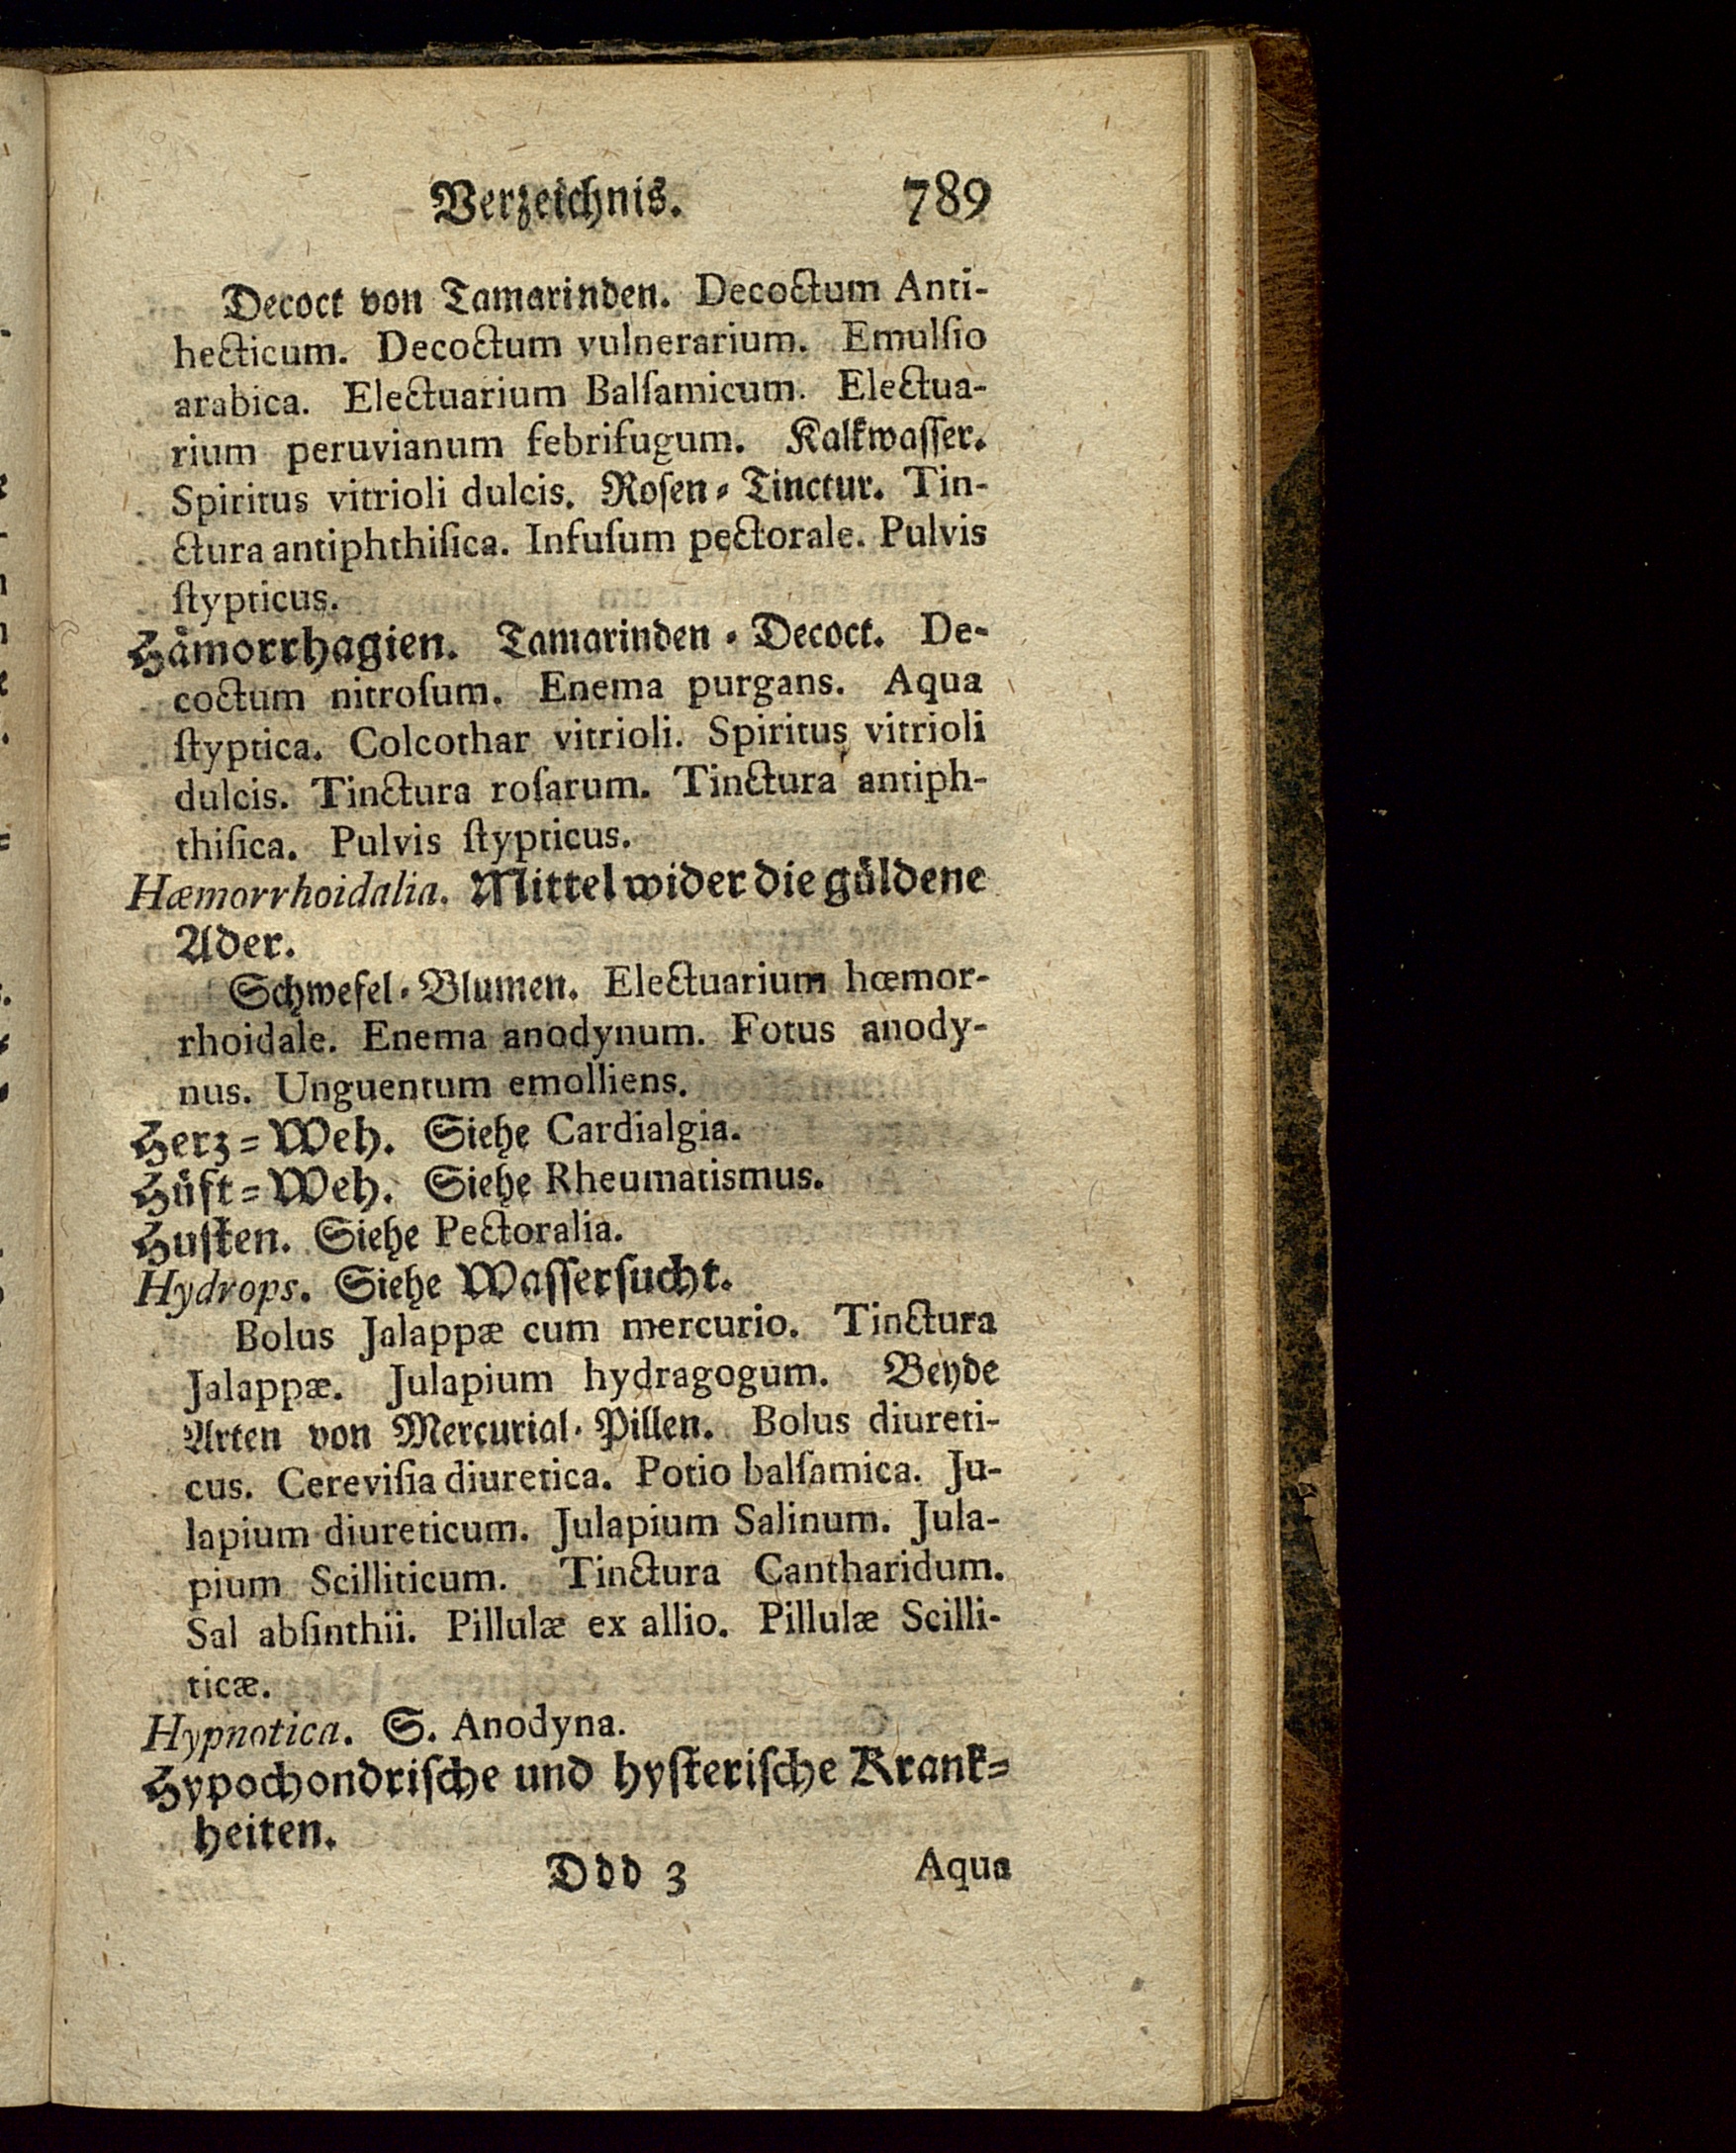 Verzeichnis. 789
Decoct von Tamarinden. Decoctum Anti-
hecticum. Decoctum vulnerarium. Emulſio
arabica. Electuarium Balſamicum. Electua-
rium peruvianum febrifugum. Kalkwaſſer.
Spiritus vitrioli dulcis. Roſen-Tinctur. Tin-
ctura antiphthiſica. Infuſum pectorale. Pulvis
ſtypticus.
Hämorrhagien. Tamarinden-Decoct. De-
coctum nitroſum. Enema purgans. Aqua
ſtyptica. Colcothar vitrioli. Spiritus vitrioli
dulcis. Tinctura roſarum. Tinctura antiph-
thiſica. Pulvis ſtypticus.
Hæmorrhoidalia. Mittel wider die güldene
Ader.
Schwefel-Blumen. Electuarium hœmor-
rhoidale. Enema anodynum. Fotus anody-
nus. Unguentum emolliens.
Herz-Weh. Siehe Cardialgia.
Hüft-Weh. Siehe Rheumatismus.
Huſten. Siehe Pectoralia.
Hydrops. Siehe Waſſerſucht.
Bolus Jalappæ cum mercurio. Tinctura
Jalappæ. Julapium hydragogum. Beyde
Arten von Mercurial-Pillen. Bolus diureti-
cus. Cereviſia diuretica. Potio balſamica. Ju-
lapium diureticum. Julapium Salinum. Jula-
pium Scilliticum. Tinctura Cantharidum.
Sal abſinthii. Pillulæ ex allio. Pillulæ Scilli-
ticæ.
Hypnotica. S. Anodyna.
Hypochondriſche und hyſteriſche Krank-
heiten.
Ddd 3 Aqua